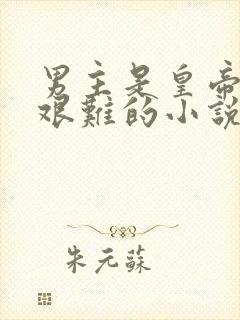 男主是皇帝
艰難的小說
朱元蘇